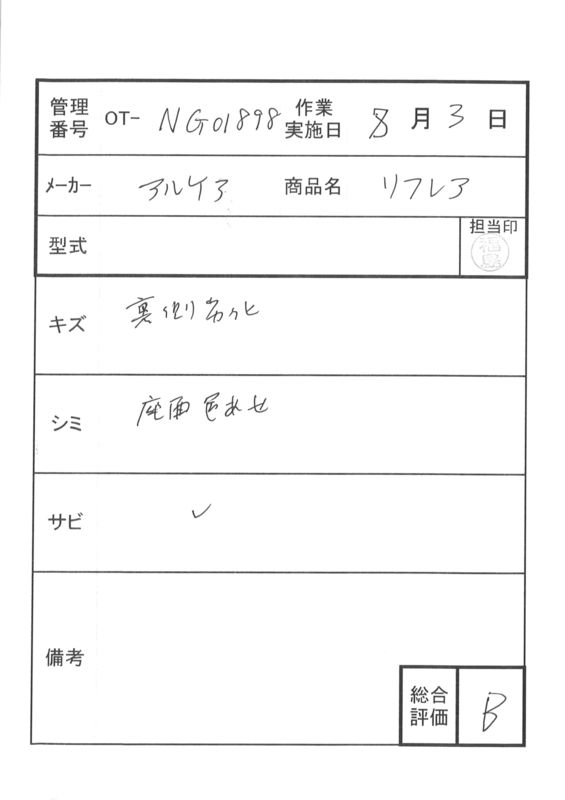 管理番号 OT- NG01898 作業実施日 8月3日
メーカー アルケア 商品名 リフレア
型式 担当印 福島
キズ 裏側劣化
シミ 座面色あせ
サビ ✓
備考
総合評価 B